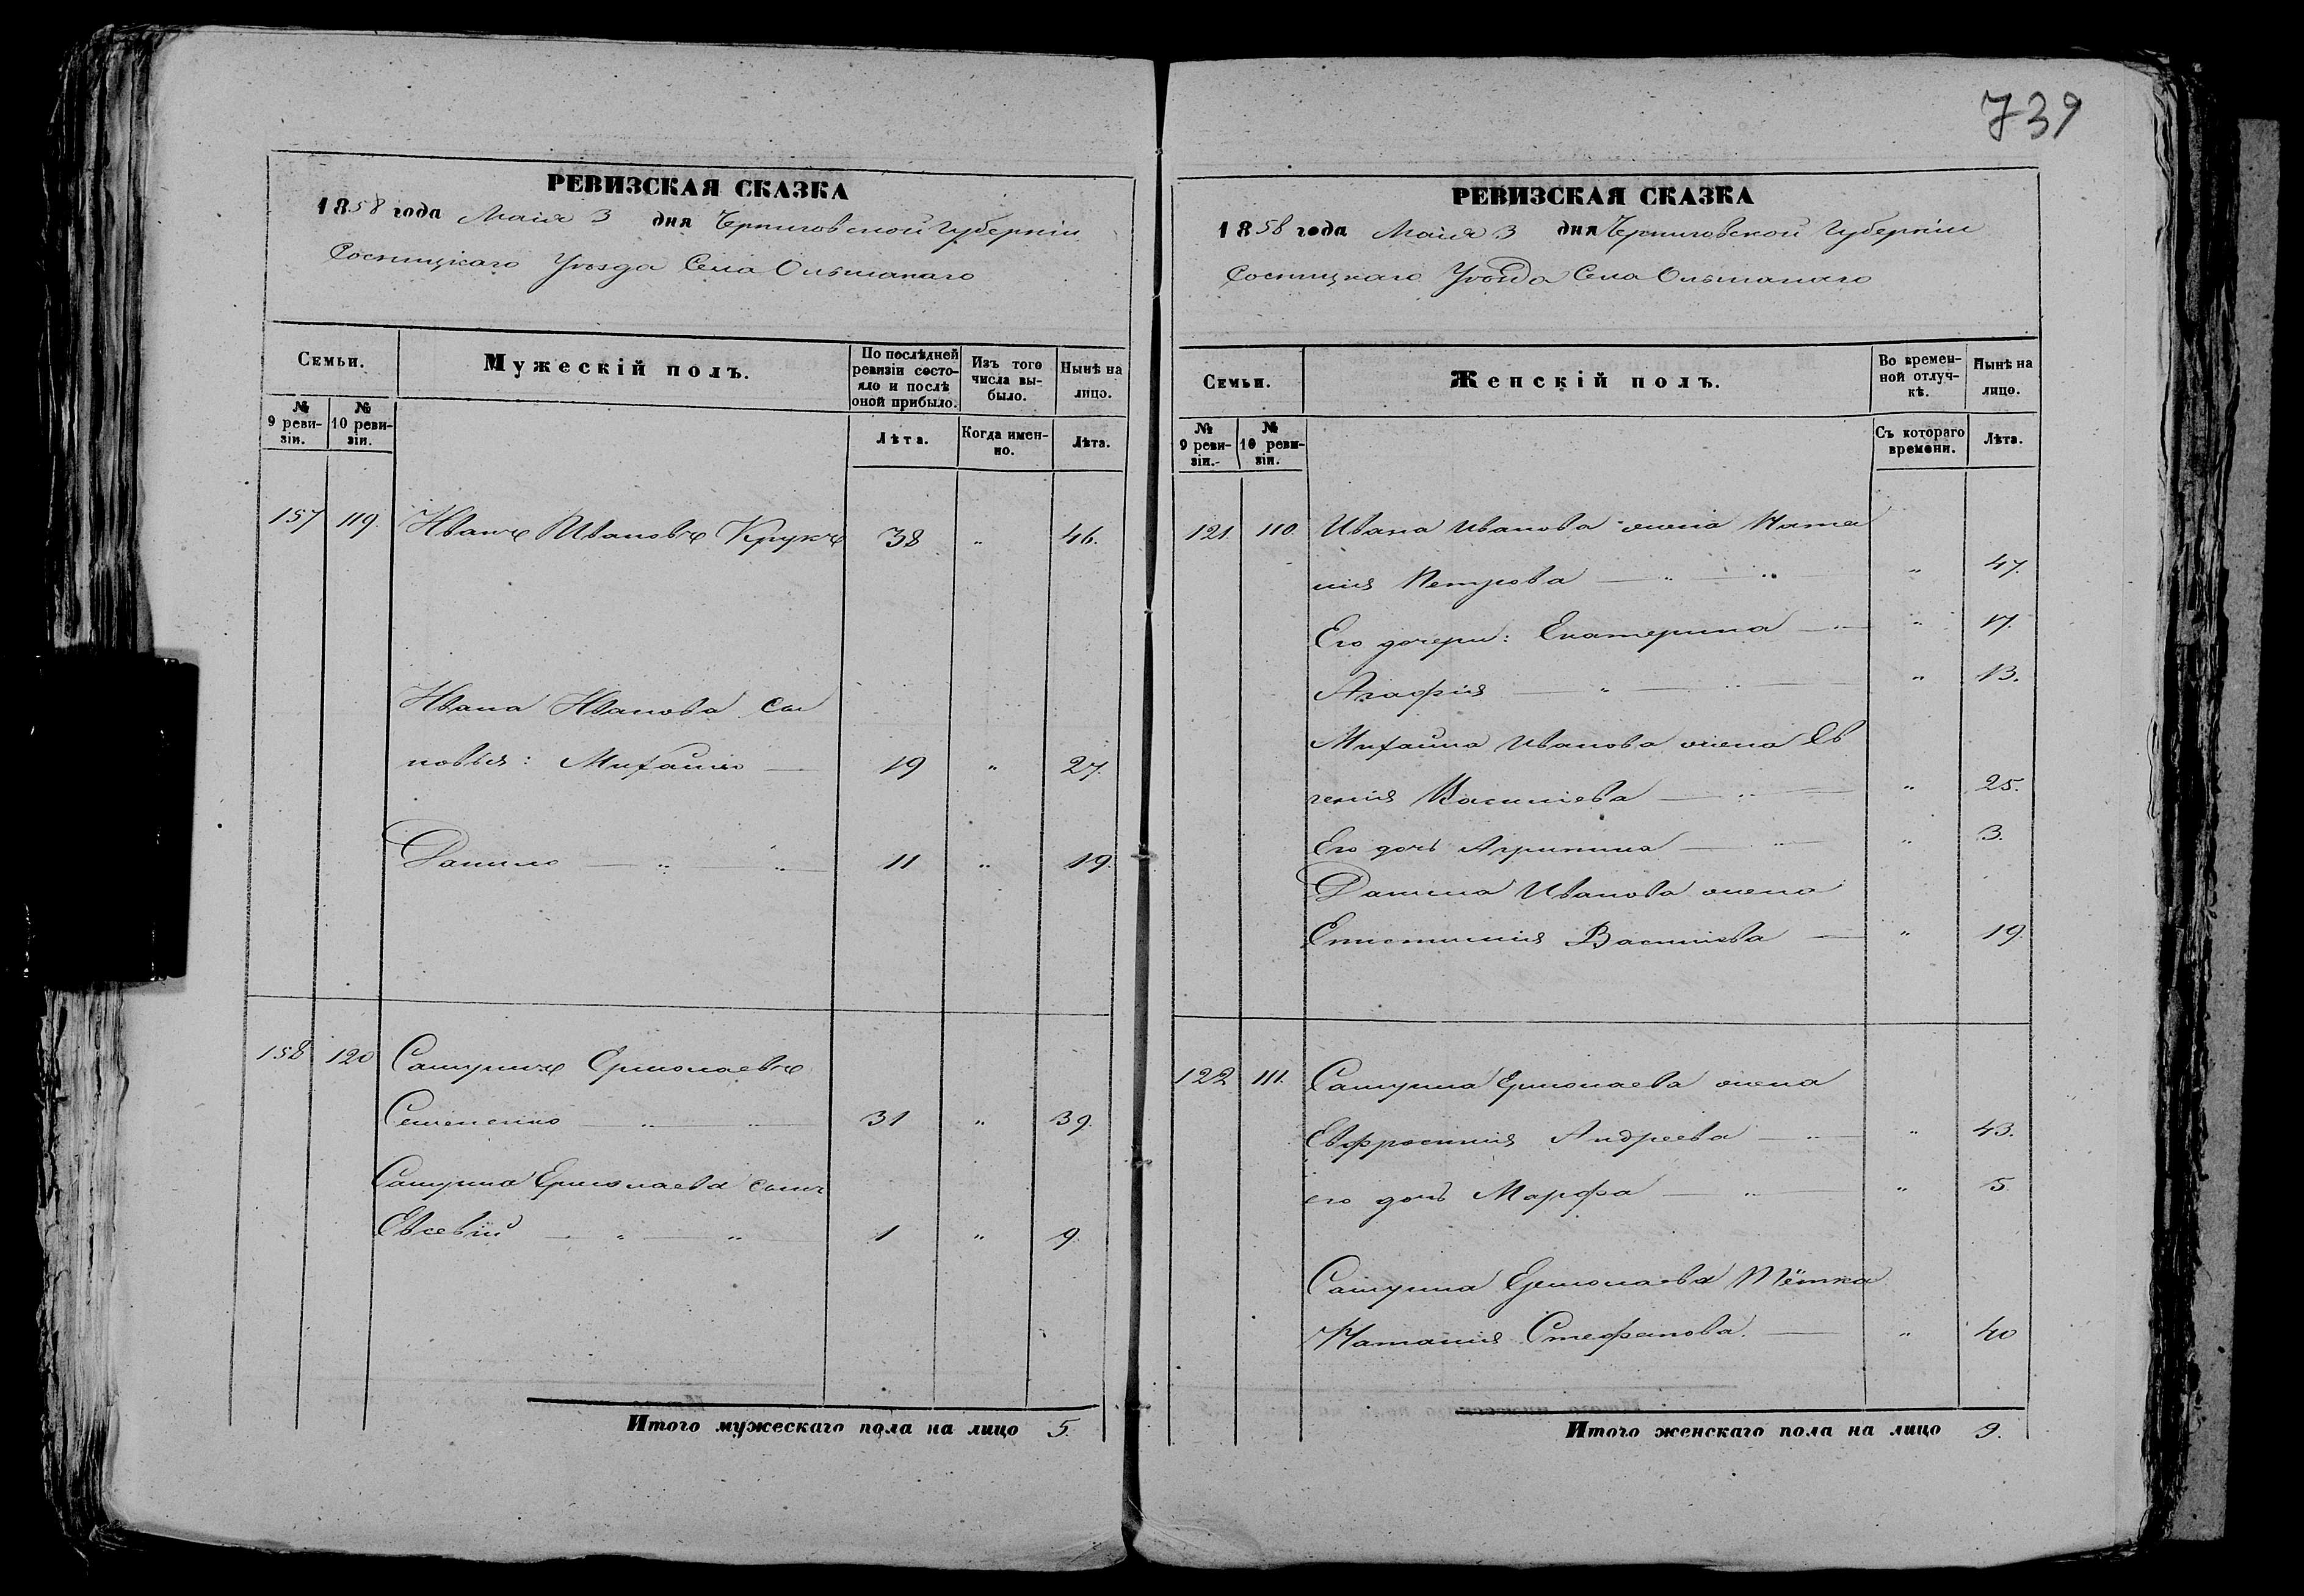 739
РЕВИЗСКАЯ СКАЗКА
1858 года Маія 3 дня Черниговской Губерніи
Сосницкаго Уѣзда Села Ольшанаго
Семьи.
Мужескій полъ.
По послѣдней ревизіи состояло и послѣ оной прибыло.
Изъ того числа выбыло.
Нынѣ на лицо.
№ 9 ревизіи.
№ 10 ревизіи.
Лѣта.
Когда именно.
Лѣта.
157 119. Иванъ Ивановъ Крукъ 38 " 46.
Ивана Иванова сы
новья: Михайло — 19 " 27.
Данило — " " 11 " 19.
158 120 Самуилъ Ермолаевъ
Семененко — " — " 31 " 39.
Самуила Ермолаева сынъ
Евсевій — " — " 1 " 9
Итого мужескаго пола на лицо 5.
РЕВИЗСКАЯ СКАЗКА
1858 года Маія 3 дня Черниговской Губерніи
Сосницкаго Уѣзда Села Ольшанаго
Семьи.
Женскій полъ.
Во временной отлучкѣ.
Нынѣ на лицо.
№ 9 ревизіи.
№ 10 ревизіи.
Съ котораго времени.
Лѣта.
121 110. Ивана Иванова жена Ната
лия Петрова — " — " " 47.
Его дочери: Екатерина — " 17.
Агафия — " — " " 13.
Михайла Иванова жена Ев
гения Василиева — " — " 25.
Его дочь Агрипина — " " 3.
Данила Иванова жена
Епистимия Василиева — " 19.
122 111. Самуила Ермолаева жена
Евфросиния Андреева — " — " 43.
его дочь Марфа — " — " 5
Самуила Ермолаева Тётка
Наталия Стефанова. — " 40
Итого женскаго пола на лицо 9.